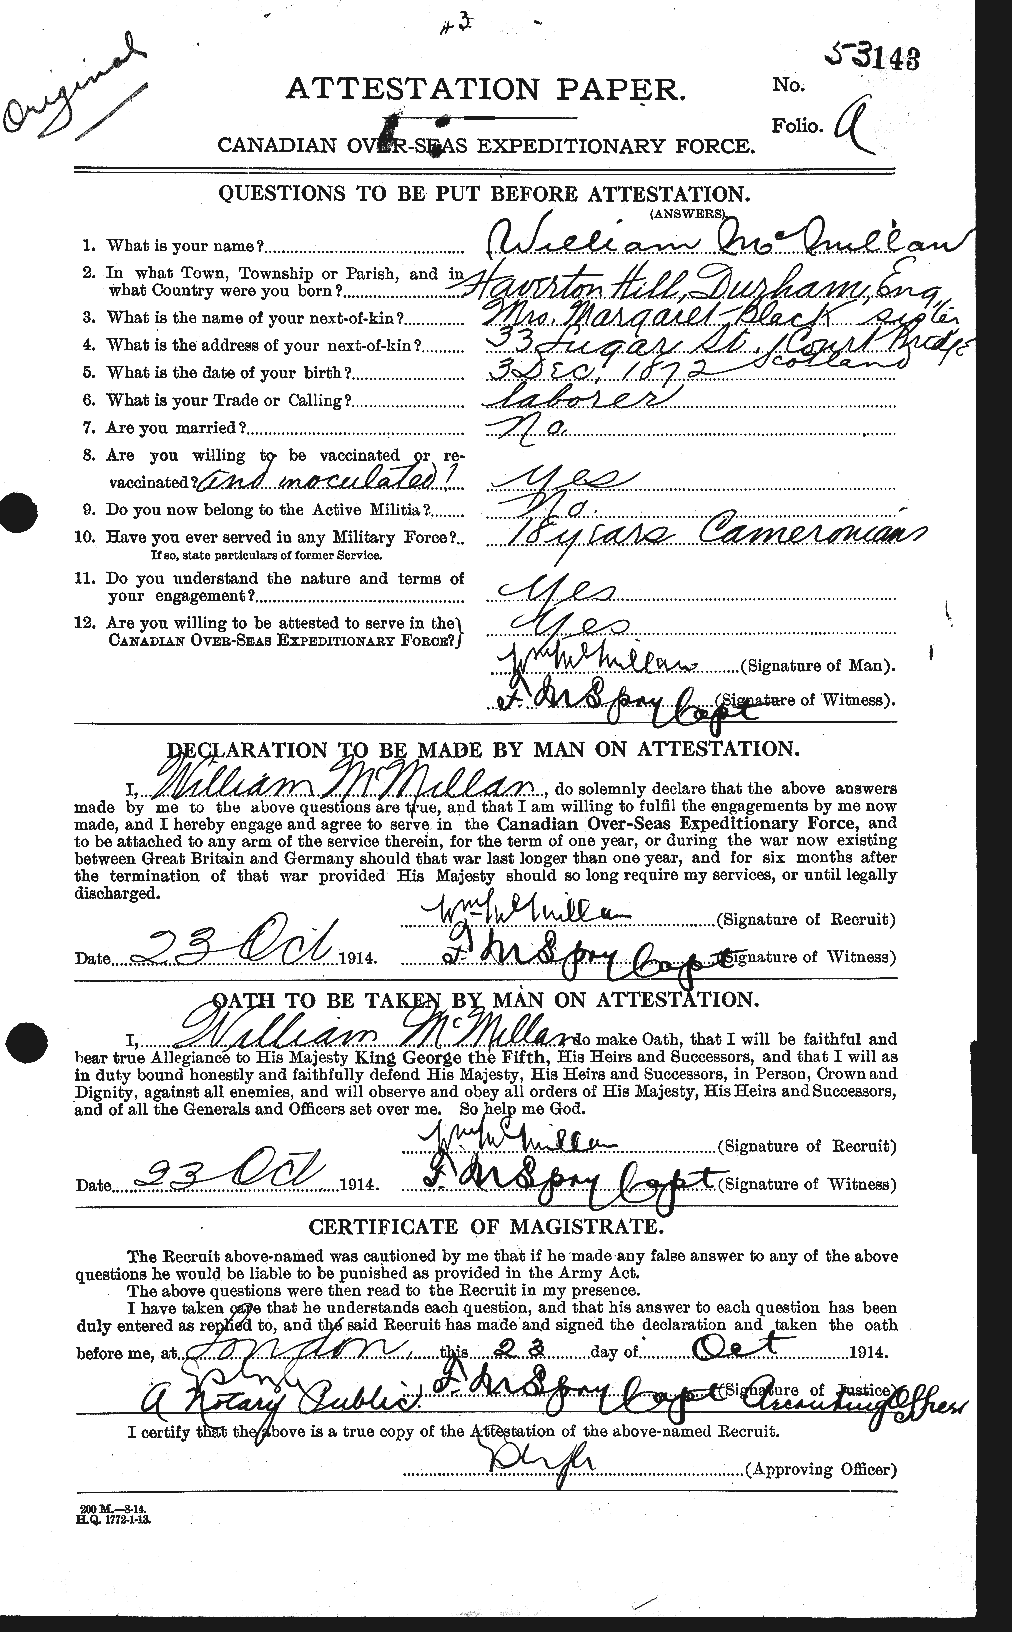 # 3
Original
53143
ATTESTATION PAPER.
No.
Folio. A
CANADIAN OVER-SEAS EXPEDITIONARY FORCE.
QUESTIONS TO BE PUT BEFORE ATTESTATION.
(ANSWERS)
1. What is your name? William McMillan
2. In what Town, Township or Parish, and in
what Country were you born? Haverton Hill, Durham, Eng
3. What is the name of your next-of-kin? Mrs. Margaret Black sister
4. What is the address of your next-of-kin? 33 Sugar St. Court Bridge
Scotland
5. What is the date of your birth? 3 Dec, 1872
6. What is your Trade or Calling? laborer
7. Are you married? No.
8. Are you willing to be vaccinated or re-
vaccinated? and inoculated? Yes
9. Do you now belong to the Active Militia? No.
10. Have you ever served in any Military Force? 18 years Cameronians
If so, state particulars of former Service.
11. Do you understand the nature and terms of
your engagement? Yes
12. Are you willing to be attested to serve in the
CANADIAN OVER-SEAS EXPEDITIONARY FORCE? Yes
Wm McMillan (Signature of Man).
F. M Spry Capt (Signature of Witness).
DECLARATION TO BE MADE BY MAN ON ATTESTATION.
I, William McMillan, do solemnly declare that the above answers
made by me to the above questions are true, and that I am willing to fulfil the engagements by me now
made, and I hereby engage and agree to serve in the Canadian Over-Seas Expeditionary Force, and
to be attached to any arm of the service therein, for the term of one year, or during the war now existing
between Great Britain and Germany should that war last longer than one year, and for six months after
the termination of that war provided His Majesty should so long require my services, or until legally
discharged.
Wm McMillan (Signature of Recruit)
Date 23 Oct 1914. F. M Spry Capt (Signature of Witness)
OATH TO BE TAKEN BY MAN ON ATTESTATION.
I, William McMillan do make Oath, that I will be faithful and
bear true Allegiance to His Majesty King George the Fifth, His Heirs and Successors, and that I will as
in duty bound honestly and faithfully defend His Majesty, His Heirs and Successors, in Person, Crown and
Dignity, against all enemies, and will observe and obey all orders of His Majesty, His Heirs and Successors,
and of all the Generals and Officers set over me. So help me God.
Wm McMillan (Signature of Recruit)
Date 23 Oct 1914. F. M Spry Capt (Signature of Witness)
CERTIFICATE OF MAGISTRATE.
The Recruit above-named was cautioned by me that if he made any false answer to any of the above
questions he would be liable to be punished as provided in the Army Act.
The above questions were then read to the Recruit in my presence.
I have taken care that he understands each question, and that his answer to each question has been
duly entered as replied to, and the said Recruit has made and signed the declaration and taken the oath
before me, at London, this 23 day of Oct 1914.
F. M Spry Capt (Signature of Justice)
A Notary Public. Recruiting Officer
I certify that the above is a true copy of the Attestation of the above-named Recruit.
(Approving Officer)
200 M.—8-14.
H.Q. 1772-1-13.